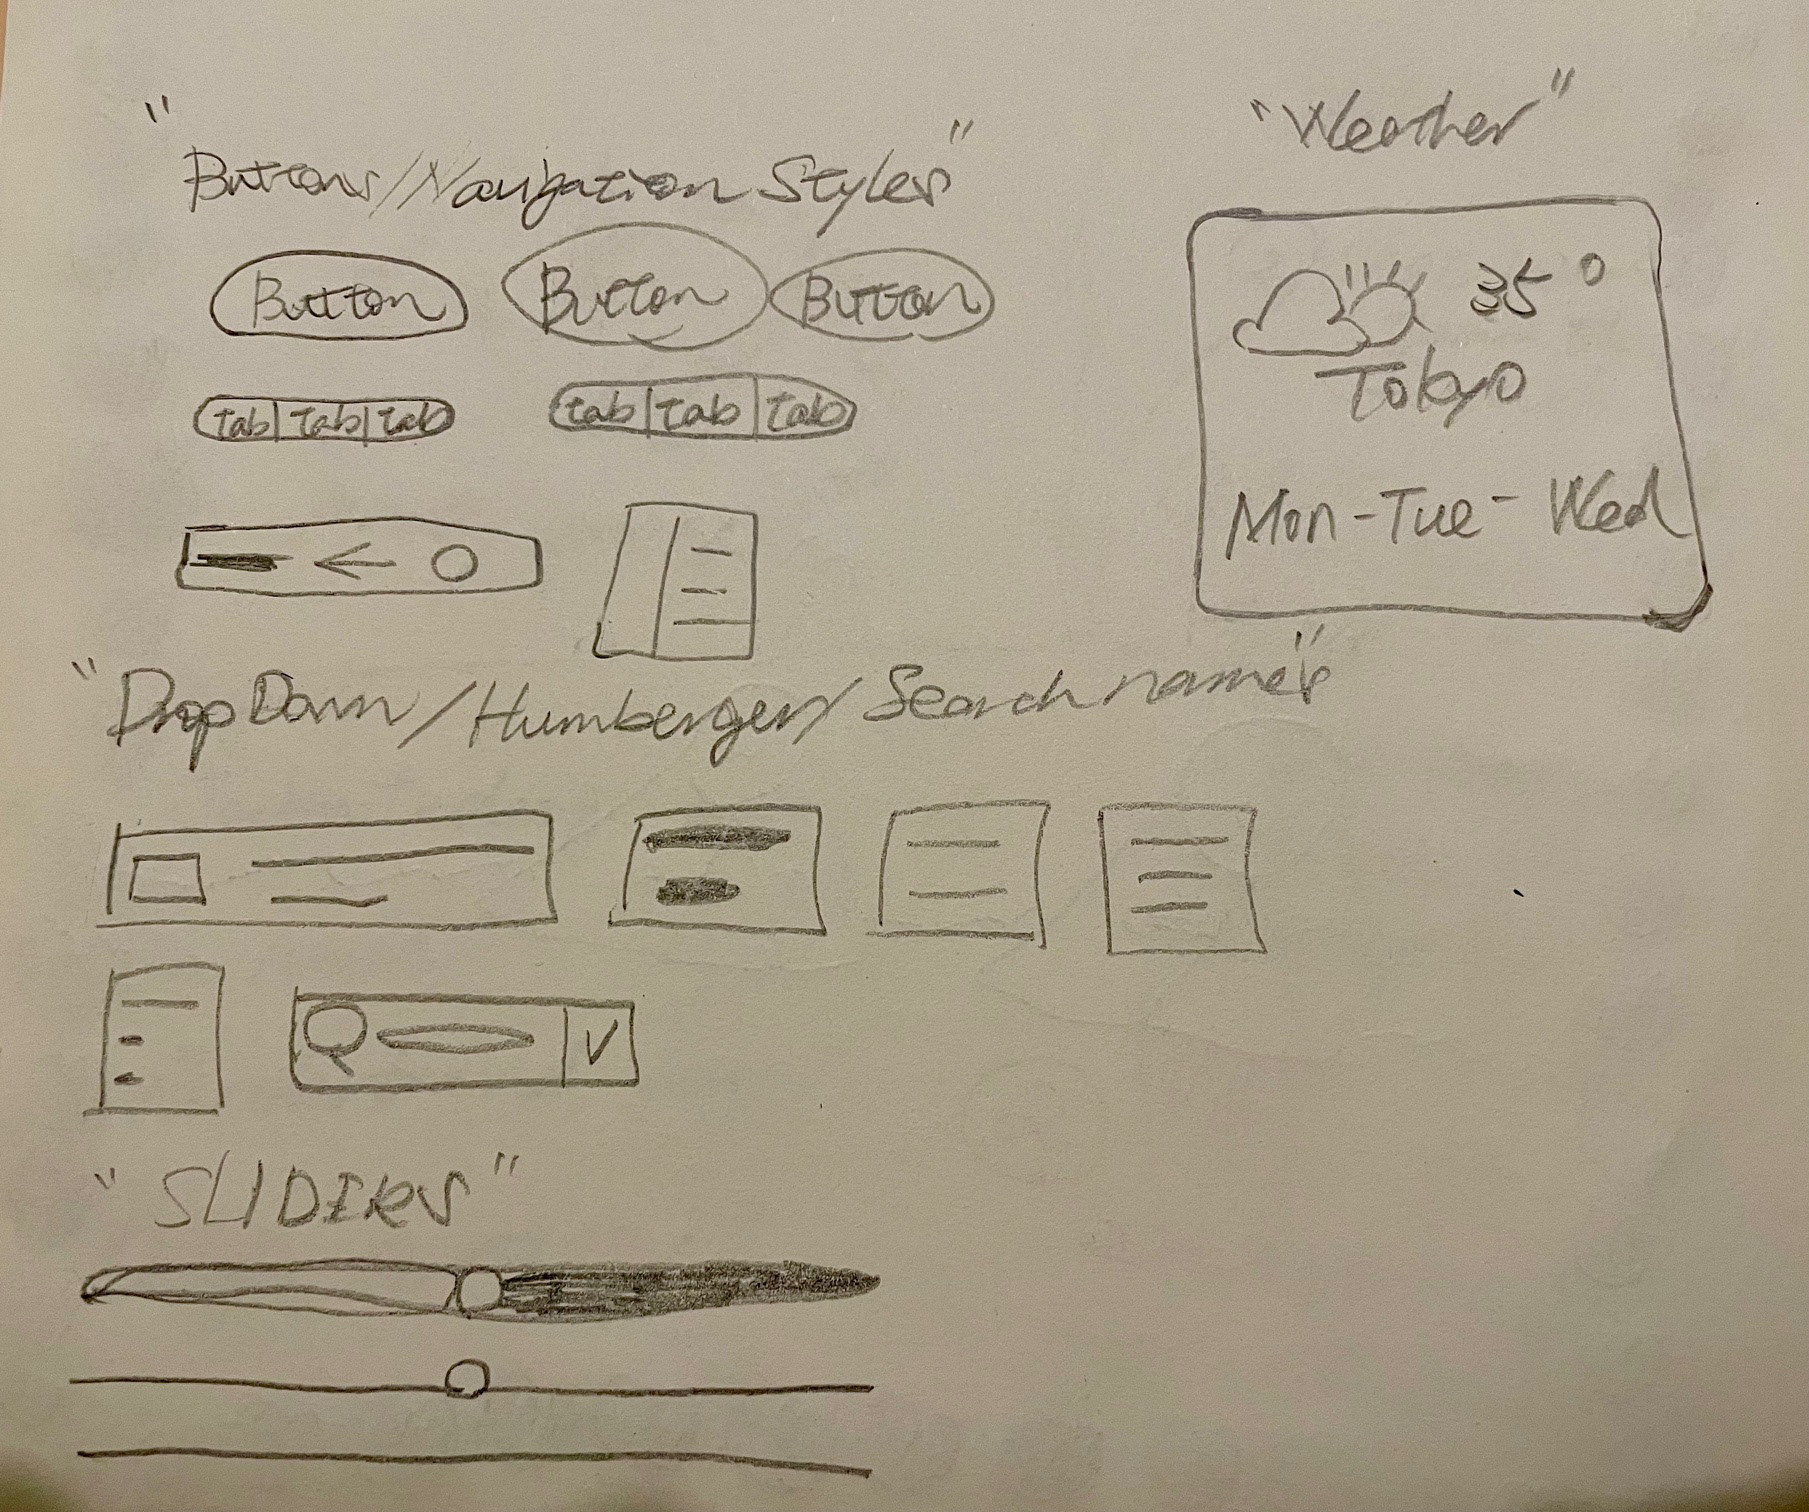 "Buttons/Navigation Styles"
Button Button Button
tab tab tab
tab tab tab
"Weather"
35°
Tokyo
Mon-Tue-Wed
"DropDown/Humberger/Search names"
"SLIDERS"